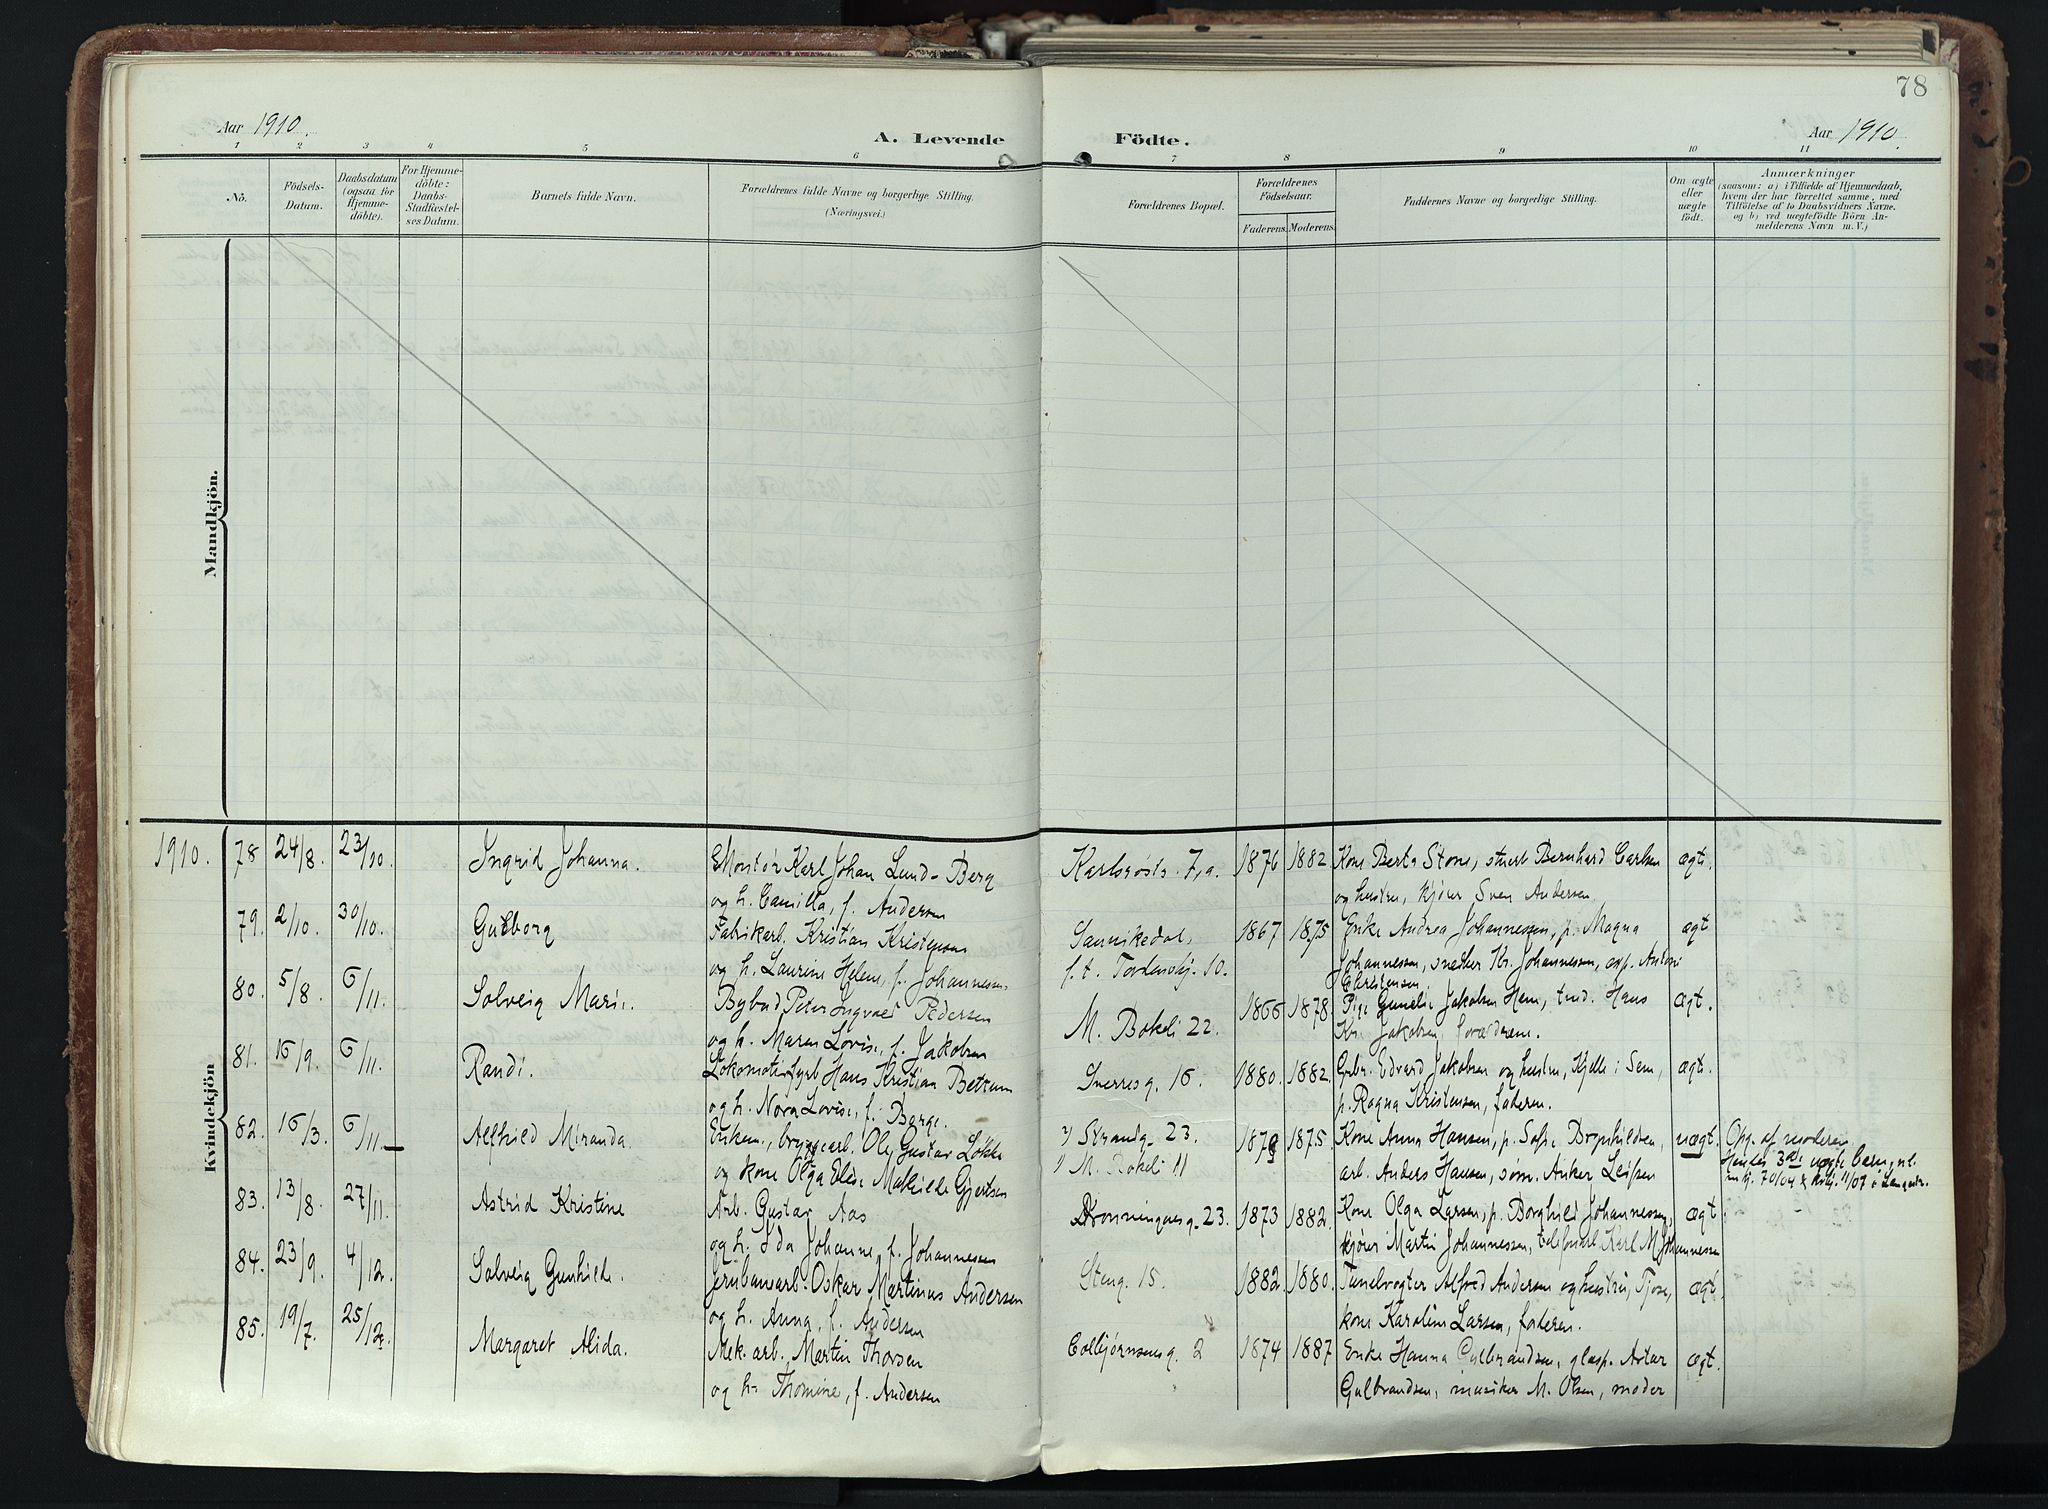 78
Aar 1910.
A. Levende Födte.
Aar 1910.
1 2 3 4 5 6 7 8 9 10 11
No.
Födsels-Datum.
Daabsdatum (ogsaa for Hjemme-döbte).
For Hjemme-döbte: Daabs-Stadfæstel-ses Datum.
Barnets fulde Navn.
Forældrenes fulde Navne og borgerlige Stilling.
(Næringsvei.)
Forældrenes Bopæl.
Forældrenes Födselsaar.
Faderens. Moderens.
Faddernes Navne og borgerlige Stilling.
Om ægte eller uægte födt.
Anmærkninger
(saasom: a) i Tilfælde af Hjemmedaab, hvem der har forrettet samme, med Tilföielse af to Daabsvidners Navne. og b) ved uægtefödte Börn An-melderens Navn m. V.)
Mandkjön.
Kvindekjön
1910. 78 24/8. 23/10. Ingrid Johanna. Montör Karl Johan Lund-Berg Karlsrosts. 7,a. 1876 1882 Kone Berta Stone, stuert Bernhard Carlsen ægt.
og h. Camilla, f. Andersen og hustru, kjører Sven Andersen.
79. 2/10. 30/10. Gutborg Fabrikarb. Kristian Kristensen Sannikedal, 1867 1875 Enke Andrea Johannessen, p. Magna ægt
og h. Laurine Helene, f. Johannessen f. t. Tordenskj. 10. Johannessen, snekker Kr. Johannessen, exp. Anton
Christensen.
80. 5/8. 6/11. Solveig Marie. Bybud Peter Ingvald Pedersen M. Bøkeli 22. 1866 1878. Pige Gunelie Jakobsen Hem, tmd. Hans ægt.
og h. Maren Lovise, f. Jakobsen Kr. Jakobsen, forældrene.
81. 16/9. 6/11. Randi. Lokomotivfyrb Hans Kristian Betzum Sverresg. 16. 1880. 1882. Grbr. Edvard Jakobsen og hustru, Kjelle i Sem, ægt.
og h. Nora Lovise, f. Berge. p. Ragna Kristensen, faderen.
82. 16/3. 6/11. Alfhild Miranda. Enkem., bryggearb. Ole Gustav Løkke 2) Strandg. 23. 1875. Kone Anna Hansen, p. Sofie Bryhildsen, uægt. Opg. af moderen.
og kone Olga Elise Mathilde Gjertsen 1) M. Bøkeli 11 arb. Anders Hansen, søm. Anker Leifsen Hendes 3die uægte barn,
83. 13/8. 27/11. Astrid Kristine Arb. Gustav Aas Dronningensg. 23. 1873 1882. Kone Olga Larsen, p. Borghild Johannessen, ægt
og h. Ida Johanne, f. Johannesen kjører Martin Johannessen, telefonarb. Karl M Johannessen
84. 23/9. 4/12. Solveig Gunhilde. Jernbanearb. Oskar Martinus Andersen Steng. 15. 1882 1880. Tunelvogter Alfred Andersen og hustru, Tjose, ægt.
og h. Anna, f. Andersen kone Karoline Larsen, faderen.
85. 19/7. 25/12. Margaret Alida. Mek. arb. Martin Thorsen Colbjørnseng. 2 1874 1887 Enke Hanna Gulbrandsen, glasp. Artur ægt.
og h. Thomine, f. Andersen Gulbrandsen, musiker M. Olsen, moder